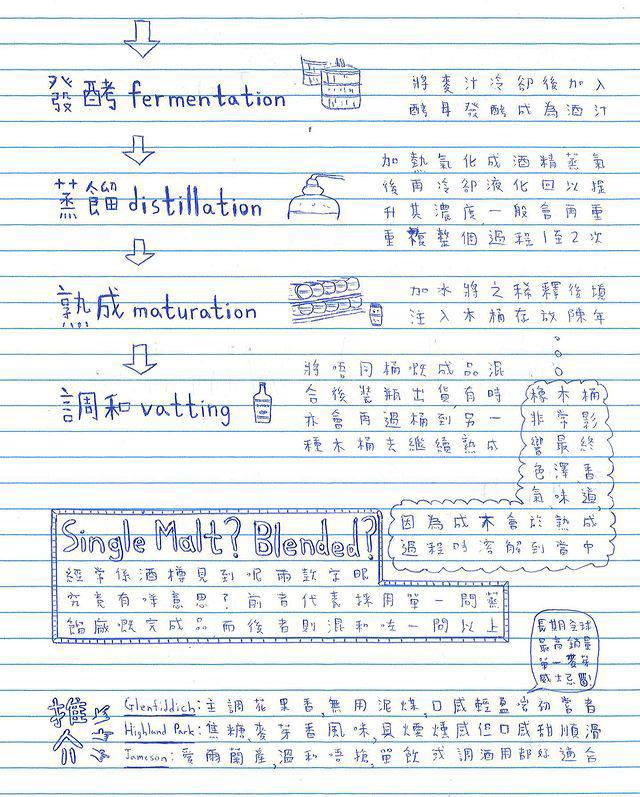 發酵 fermentation
將麥汁冷卻後加入
酵母發酵成為酒汁
蒸餾 distillation
加熱氣化成酒精蒸氣
後再冷卻液化回以提
升其濃度,一般會再重
重複整個過程1至2次
熟成 maturation
加水將之稀釋後填
注入木桶在放陳年
調和 vatting
將唔同桶嘅成品混
合後裝瓶出貨,有時
亦會再過桶到另一
種木桶去繼續熟成
橡木桶
非常影
響最終
色澤,香
氣,味道,
因為成木會於熟成
過程時溶解到當中
Single Malt? Blended?
經常係酒樽見到呢兩款字眼
究竟有咩意思?前者代表採用單一間蒸
餾廠嘅完成品,而後者則混和咗一間以上
長期全球
最高銷量
單一麥芽
威士忌
推介
Glenfiddich:主調花果香,無用泥煤,口感輕盈
Highland Park:焦糖,麥芽香風味,具煙燻感但口感甜順滑
Jameson:愛爾蘭產,溫和唔搶,單飲或調酒用都好適合